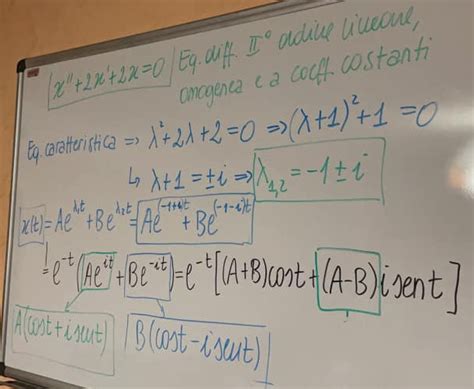 x''+2x'+2x=0 Eq. diff. II° ordine lineare,
omogenea e a coeff. costanti
Eq. caratteristica ⇒ λ²+2λ+2=0 ⇒ (λ+1)²+1=0
↳ λ+1=±i ⇒ λ₁,₂=-1±i
x(t)=Ae^{λ₁t}+Be^{λ₂t}=Ae^{(-1+i)t}+Be^{(-1-i)t}
=e^{-t}(Ae^{it}+Be^{-it})=e^{-t}[(A+B)cost+(A-B)isent]
A(cost+isent) B(cost-isent)